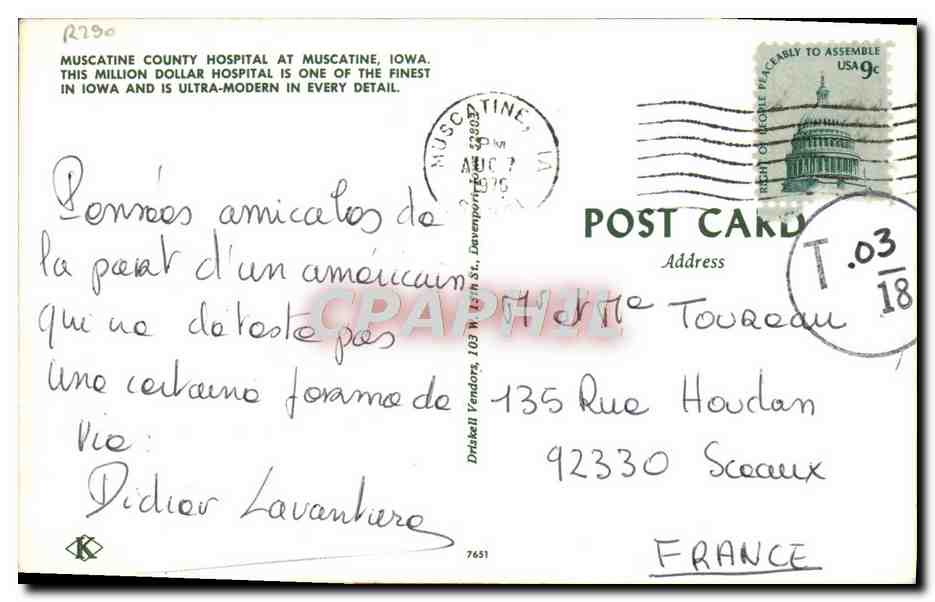 R290
MUSCATINE COUNTY HOSPITAL AT MUSCATINE, IOWA.
THIS MILLION DOLLAR HOSPITAL IS ONE OF THE FINEST
IN IOWA AND IS ULTRA-MODERN IN EVERY DETAIL.
MUSCATINE, IA
PM
AUG 7
1976
RIGHT OF PEOPLE PEACEABLY TO ASSEMBLE
USA 9c
POST CARD
Address
T .03/18
Pensées amicales de
la part d'un américain
qui ne déteste pas
une certaine forme de
vie :
Didier Lavanture
Driskell Vendors, 103 W. 15th St., Davenport, Iowa 52803
Mr et Me Toureau
135 Rue Houdan
92330 Sceaux
FRANCE
K
7651
CPAPHIL